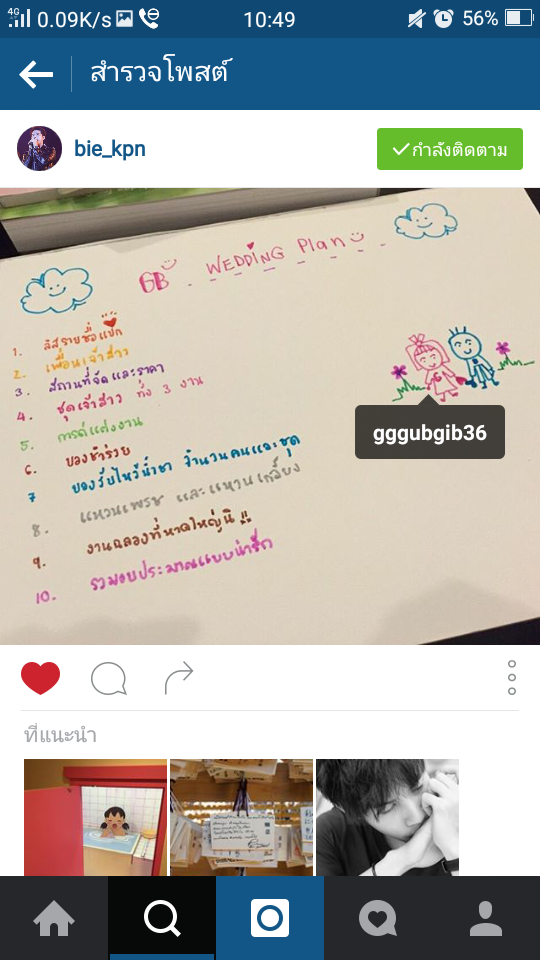 4G 0.09K/s 10:49 56%
สำรวจโพสต์
bie_kpn
กำลังติดตาม
GB . WEDDING Plan
1. ลิสรายชื่อแขก
2. เพื่อนเจ้าสาว
3. สถานที่จัดและราคา
4. ชุดเจ้าสาว ทั้ง 3 งาน
5. การ์ดแต่งงาน
6. ของชำร่วย
7 ของรับไหว้น้ำชา จำนวนคนและชุด
8. แหวนเพชร และแหวนเกลี้ยง
9. งานฉลองที่หาดใหญ่นิ !!
10. รวมงบประมาณแบบน่ารัก
gggubgib36
ที่แนะนำ